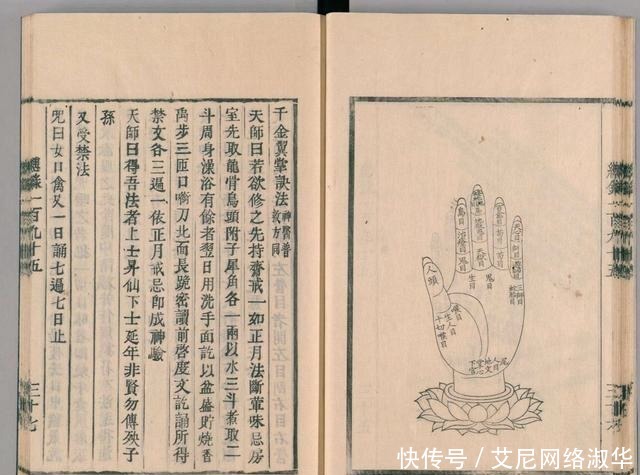 人頭
鬼目
生目
千金翼掌訣法 神醫普救方同
天師曰若欲修之先持齋戒一如正月法斷葷味忌房
室先取龍骨烏頭附子犀角各一兩以水三斗煮取二
斗周身澡浴有餘者翌日用洗手面訖以盆盛貯燒香
禹步三匝日嚼刀北面長跪密讀前啓度文訖誦所得
禁文各三遍一依正月戒忌即成神驗
天師曰得吾法者上士昇仙下士延年非賢勿傳殃子
孫
又受禁法
咒曰女日禽又一日誦七遍七日止
總錄一百九十五
三十七
快传号 / 艾尼网络淑华